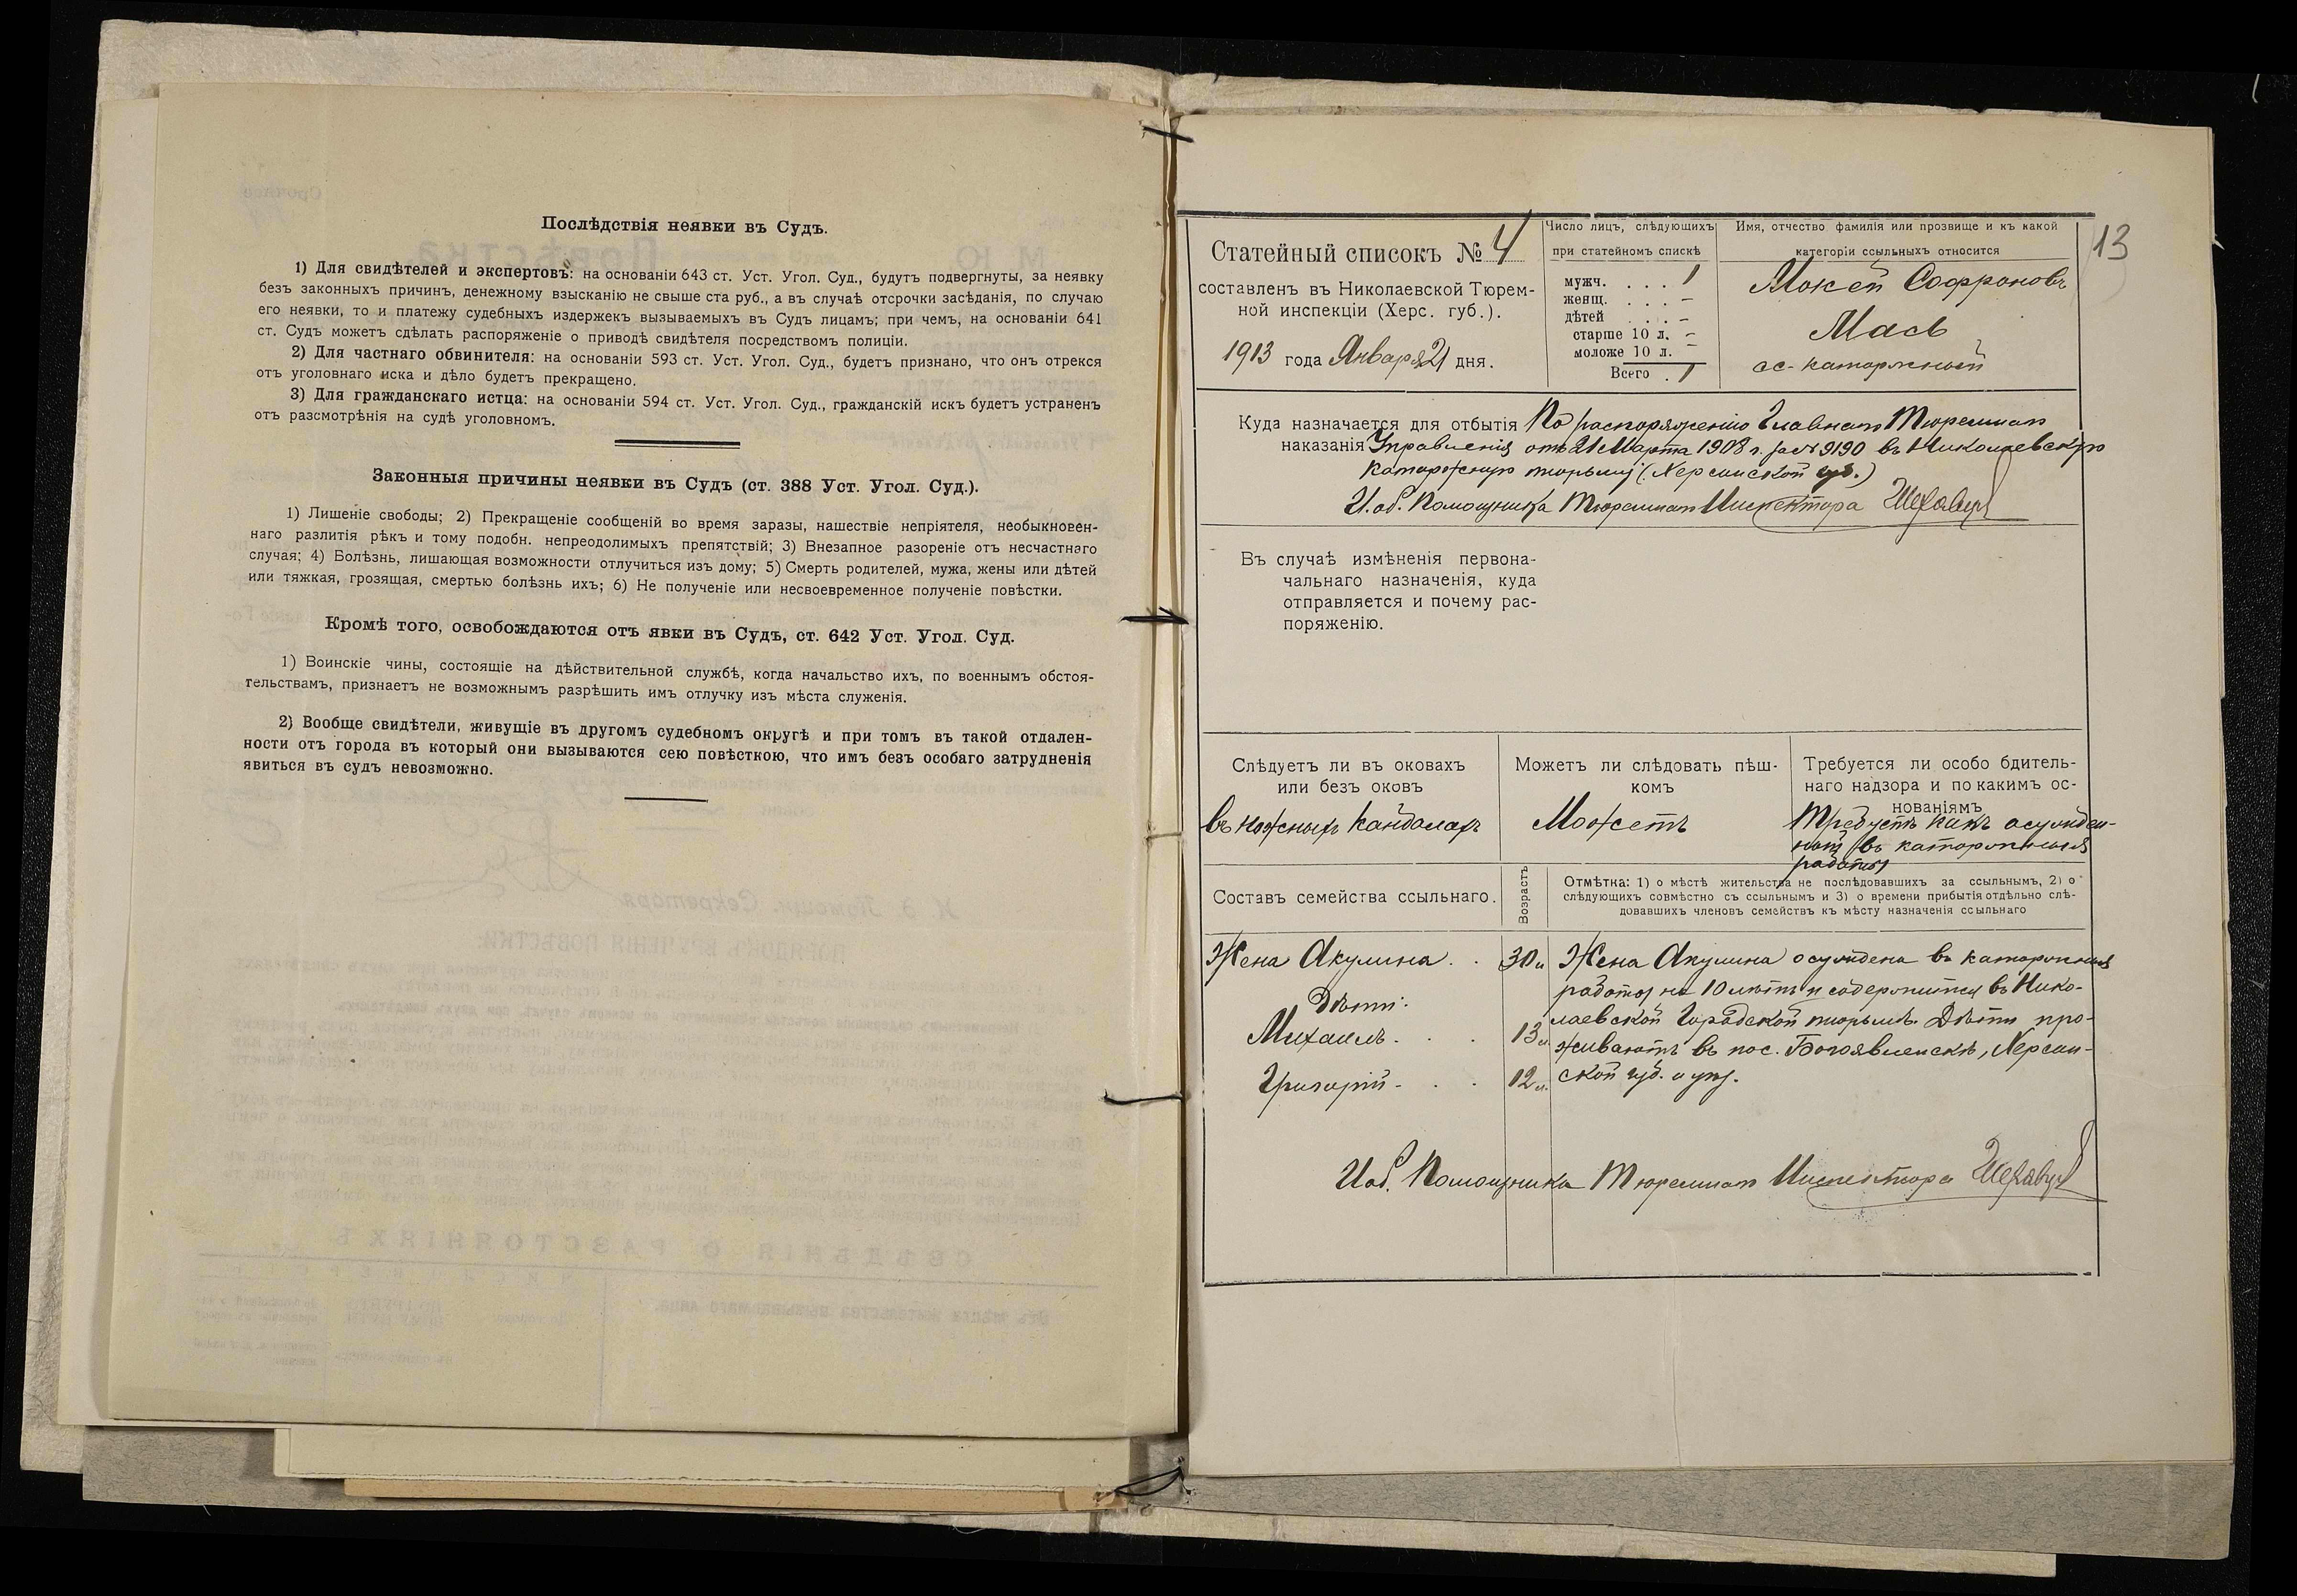 Послѣдствія неявки въ Судъ.
1) Для свидѣтелей и экспертовъ: на основаніи 643 ст. Уст. Угол. Суд., будутъ подвергнуты, за неявку
безъ законныхъ причинъ, денежному взысканію не свыше ста руб., а въ случаѣ отсрочки засѣданія, по случаю
его неявки, то и платежу судебныхъ издержекъ вызываемыхъ въ Судъ лицамъ; при чемъ, на основаніи 641
ст. Судъ можетъ сдѣлать распоряженіе о приводѣ свидѣтеля посредствомъ полиціи.
2) Для частнаго обвинителя: на основаніи 593 ст. Уст. Угол. Суд., будетъ признано, что онъ отрекся
отъ уголовнаго иска и дѣло будетъ прекращено.
3) Для гражданскаго истца: на основаніи 594 ст. Уст. Угол. Суд., гражданскій искъ будетъ устраненъ
отъ разсмотрѣнія на судѣ уголовномъ.
Законныя причины неявки въ Судъ (ст. 388 Уст. Угол. Суд.).
1) Лишеніе свободы; 2) Прекращеніе сообщеній во время заразы, нашествіе непріятеля, необыкновен-
наго разлитія рѣкъ и тому подобн. непреодолимыхъ препятствій; 3) Внезапное разореніе отъ несчастнаго
случая; 4) Болѣзнь, лишающая возможности отлучиться изъ дому; 5) Смерть родителей, мужа, жены или дѣтей
или тяжкая, грозящая, смертью болѣзнь ихъ; 6) Не полученіе или несвоевременное полученіе повѣстки.
Кромѣ того, освобождаются отъ явки въ Судъ, ст. 642 Уст. Угол. Суд.
1) Воинскіе чины, состоящіе на дѣйствительной службѣ, когда начальство ихъ, по военнымъ обстоя-
тельствамъ, признаетъ не возможнымъ разрѣшить имъ отлучку изъ мѣста служенія.
2) Вообще свидѣтели, живущіе въ другомъ судебномъ округѣ и при томъ въ такой отдален-
ности отъ города въ который они вызываются сею повѣсткою, что имъ безъ особаго затрудненія
явиться въ судъ невозможно.
13
Статейный списокъ № 4
составленъ въ Николаевской Тюрем-
ной инспекціи (Херс. губ.).
1913 года Января 21 дня.
Число лицъ, слѣдующихъ
при статейномъ спискѣ
мужч. . . . 1
женщ. . . . –
дѣтей . . . –
старше 10 л. –
моложе 10 л. –
Всего . 1
Имя, отчество фамилія или прозвище и къ какой
категоріи ссыльныхъ относится
Мокей Софроновъ
Мась
сс-каторжный
Куда назначается для отбытія По распоряженію Главнаго Тюремнаго
наказанія Управленія отъ 21 Марта 1908 г. за № 9190 въ Николаевскую
каторжную тюрьму (Херсонской губ.)
И. об. Помощника Тюремнаго Инспектора
Въ случаѣ измѣненія первона-
чальнаго назначенія, куда
отправляется и почему рас-
поряженію.
Слѣдуетъ ли въ оковахъ
или безъ оковъ
въ ножныхъ кандалахъ
Можетъ ли слѣдовать пѣш-
комъ
Можетъ
Требуется ли особо бдитель-
наго надзора и по какимъ ос-
нованіямъ
Требуетъ какъ осужден-
ный въ каторжныя
работы
Составъ семейства ссыльнаго.
Возрастъ
Отмѣтка: 1) о мѣстѣ жительства не послѣдовавшихъ за ссыльнымъ, 2) о
слѣдующихъ совмѣстно съ ссыльнымъ и 3) о времени прибытія отдѣльно слѣ-
довавшихъ членовъ семействъ къ мѣсту назначенія ссыльнаго
Жена Акулина . . 30 л.
Дѣти:
Михаилъ . . . 13 л.
Григорій . . . 12 л.
Жена Акулина осуждена въ каторжныя
работы на 10 лѣтъ и содержится въ Нико-
лаевской Городской тюрьмѣ. Дѣти про-
живаютъ въ пос. Богоявленскѣ, Херсон-
ской губ. и уѣз.
И об. Помощника Тюремнаго Инспектора